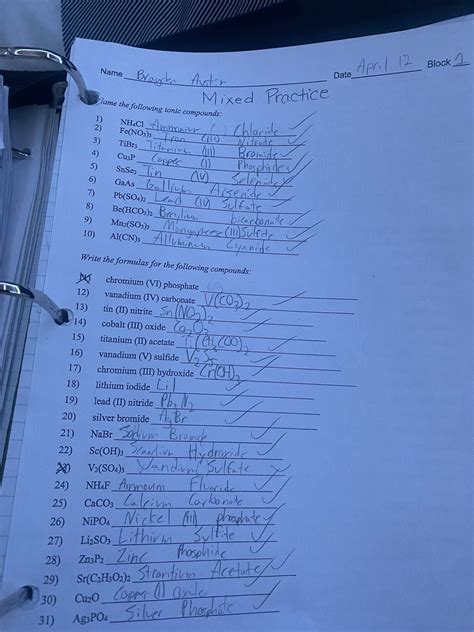 Name Brayden Austin Date April 12 Block 1
Mixed Practice
ame the following ionic compounds:
1) NH4Cl Ammonium ( ) Chloride
2) Fe(NO3)3 Iron (III) Nitrate
3) TiBr3 Titanium (III) Bromide
4) Cu3P Copper (I) Phosphide
5) SnSe2 Tin (IV) Selenide
6) GaAs Gallium Arsenide
7) Pb(SO4)2 Lead (IV) Sulfate
8) Be(HCO3)2 Berylium bicarbonate
9) Mn2(SO3)3 Manganese (III) Sulfite
10) Al(CN)3 Alluminum Cyanide
Write the formulas for the following compounds:
chromium (VI) phosphate
12) vanadium (IV) carbonate V(CO3)2
13) tin (II) nitrite Sn(NO2)2
14) cobalt (III) oxide Co2O3
15) titanium (II) acetate Ti(CH3COO)2
16) vanadium (V) sulfide V2S5
17) chromium (III) hydroxide Cr(OH)3
18) lithium iodide LiI
19) lead (II) nitride Pb3N2
20) silver bromide AgBr
21) NaBr Sodium Bromide
22) Sc(OH)3 Scandium Hydroxide
V2(SO4)3 Vandium Sulfate
24) NH4F Ammoum Fluoride
25) CaCO3 Calcium Carbonate
26) NiPO4 Nickel (III) phosphate
27) Li2SO3 Lithium Sulfite
28) Zn3P2 Zinc Phosphide
29) Sr(C2H3O2)2 Strontium Acetate
30) Cu2O Copper (I) Oxide
31) Ag3PO4 Silver Phosphate